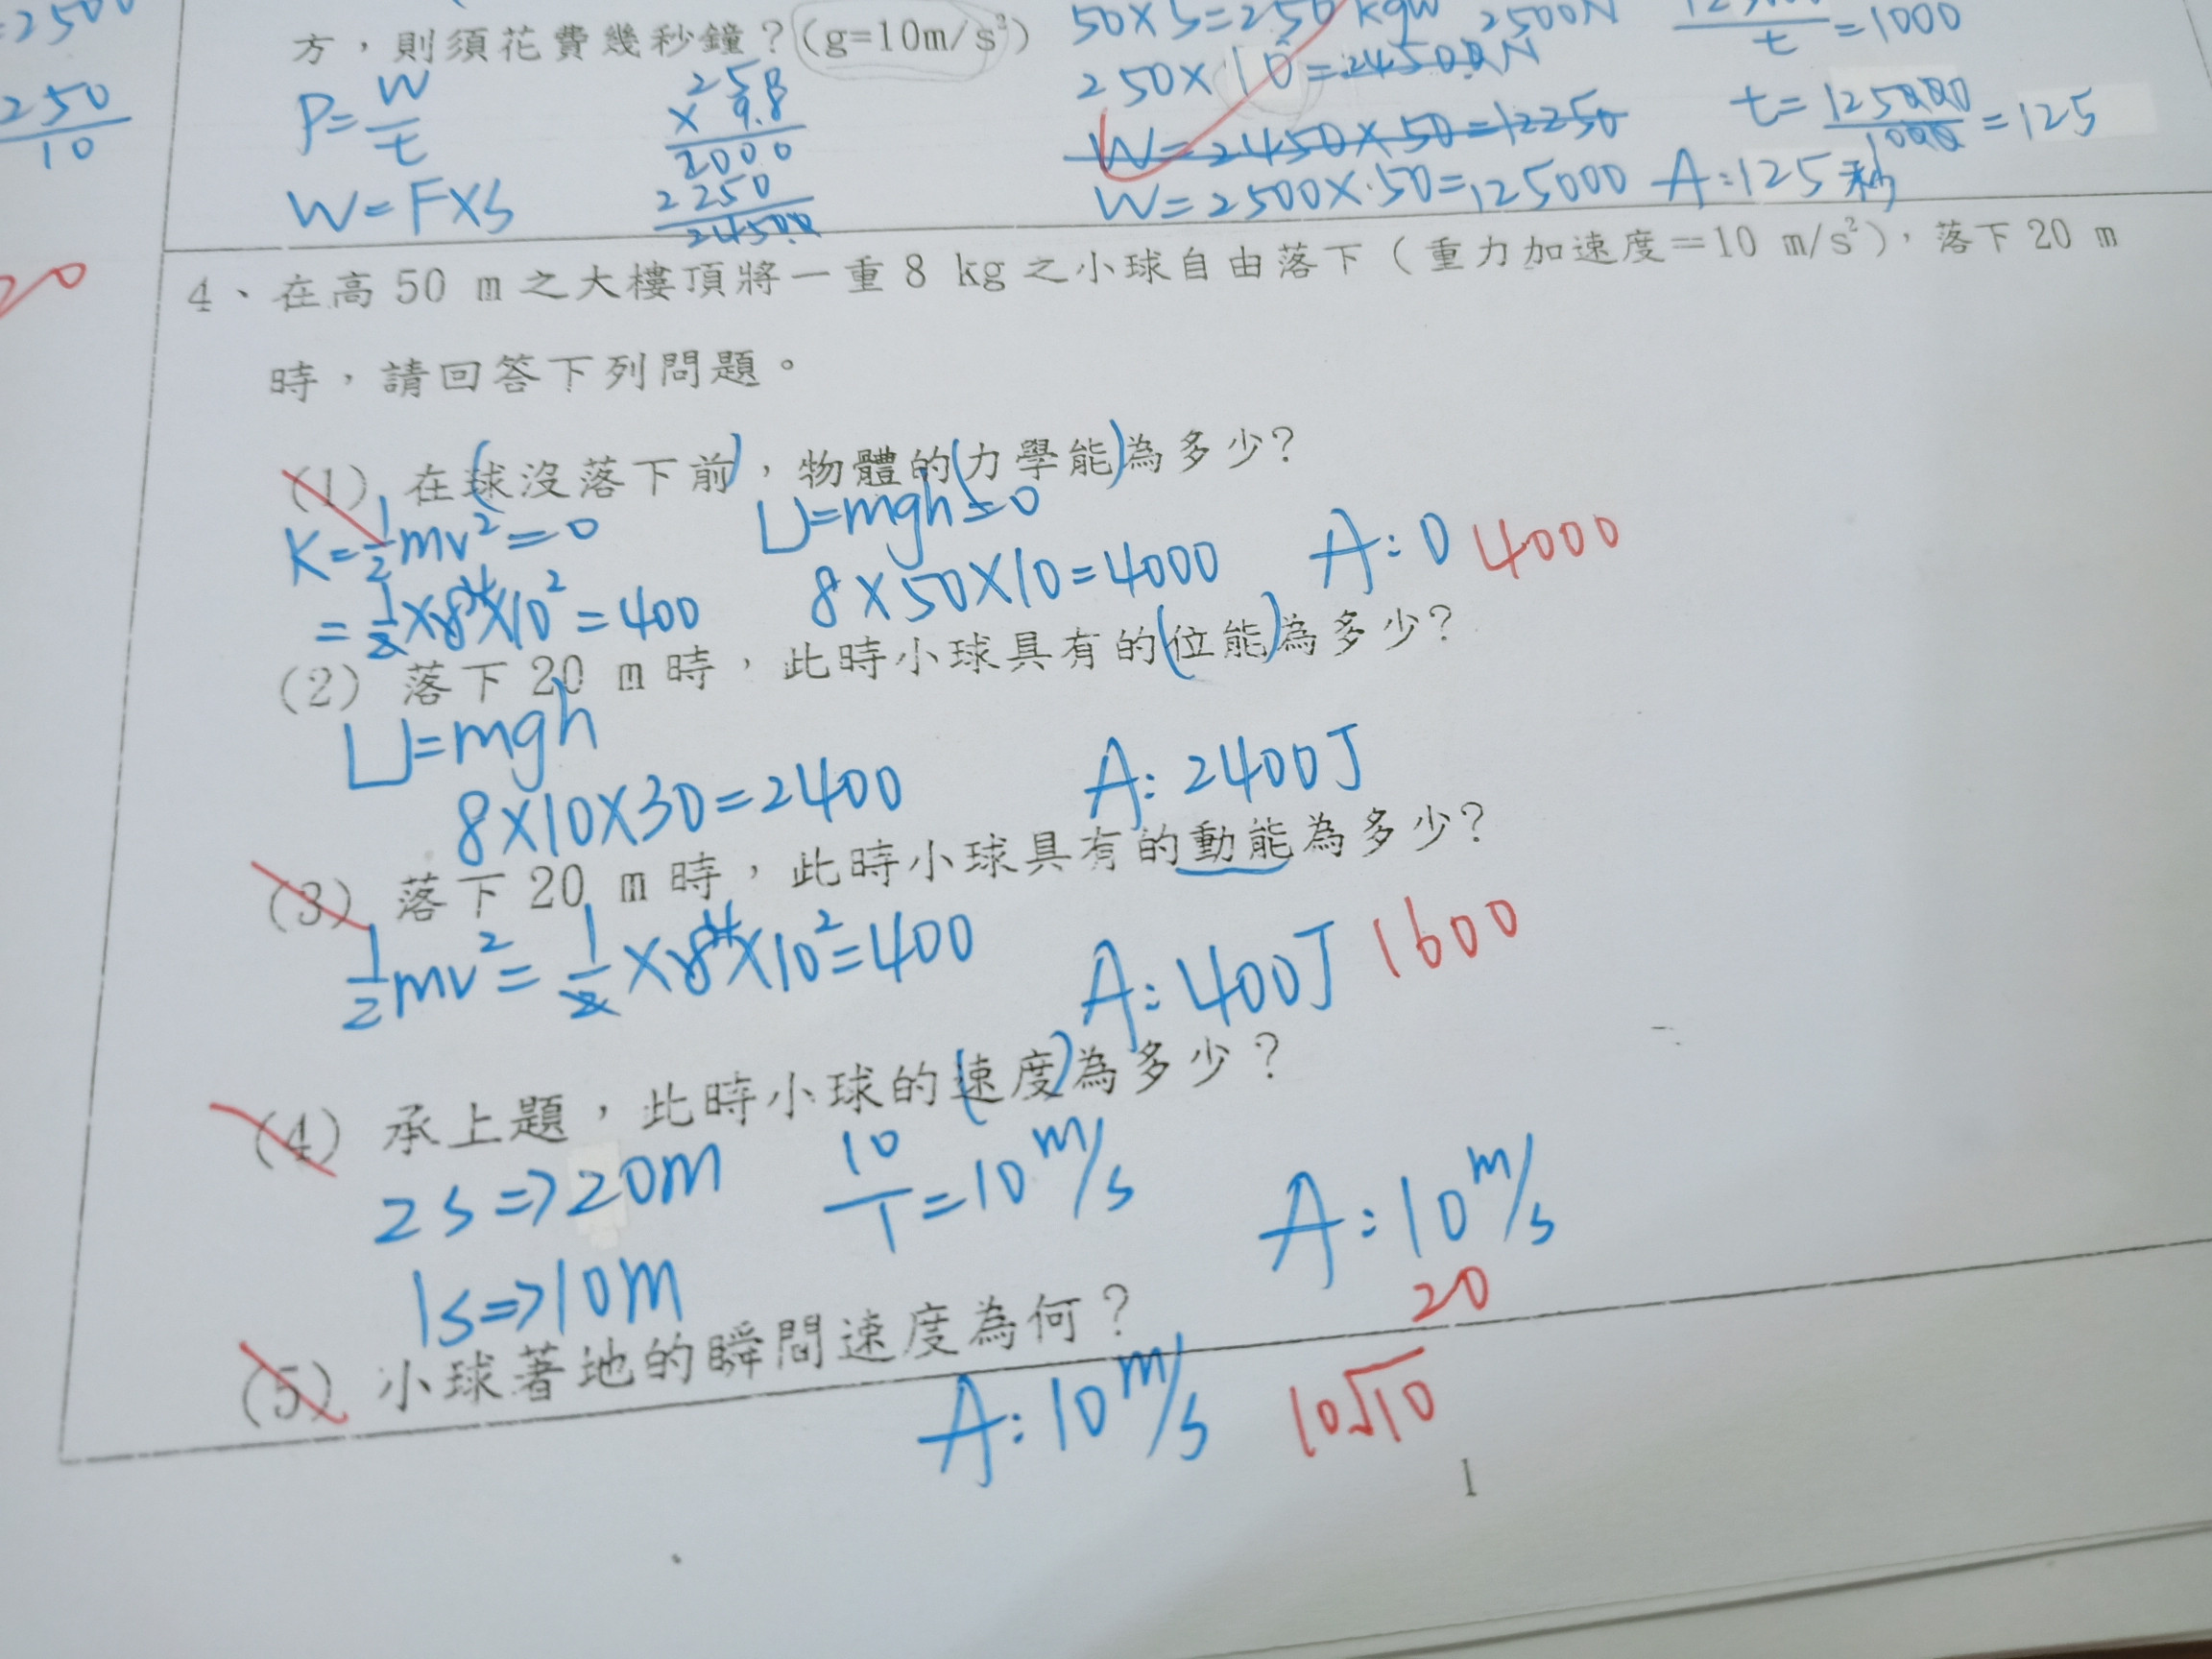 =2500
250/10
20
方，則須花費幾秒鐘？(g=10m/s²)
P=W/t
W=F×S
250
×9.8
2000
2250
24500
50×5=250 kgw 2500N
250×10=24500N
W=2450×50=12250
W=2500×50=125000
/t=1000
t=125000/1000=125
A:125秒
4、在高 50 m 之大樓頂將一重 8 kg 之小球自由落下（重力加速度＝10 m/s²），落下 20 m
時，請回答下列問題。
(1) 在(球沒落下前)，物體的(力學能)為多少？
K=1/2mv²=0
U=mgh=0
=1/2×8 4×10²=400
8×50×10=4000
A:0 4000
(2) 落下 20 m 時，此時小球具有的(位能)為多少？
U=mgh
8×10×30=2400
A:2400J
(3) 落下 20 m 時，此時小球具有的動能為多少？
1/2mv²=1/2×8 4×10²=400
A:400J 1600
(4) 承上題，此時小球的(速度)為多少？
2s=>20m
10/1=10m/s
A:10m/s
1s=>10m
20
(5) 小球著地的瞬間速度為何？
A:10m/s 10√10
1